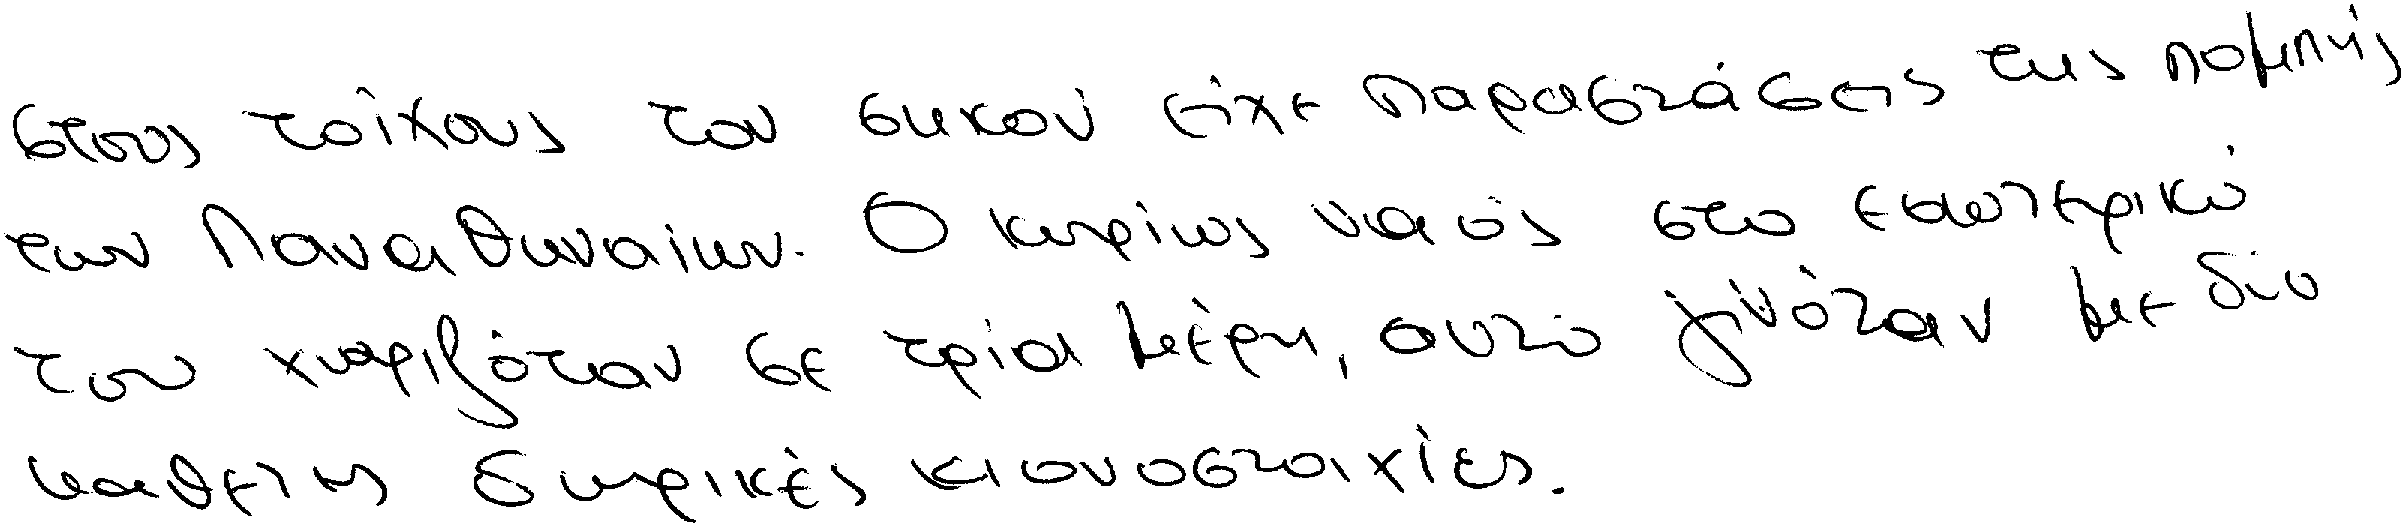 στους τοίχους του σηκού είχε παραστάσεις της πομπής
των Παναθηναίων. Ο κυρίως ναός στο εσωτερικό
του χωριζόταν σε τρία μέρη, αυτό γινόταν με δύο
κάθετες δωρικές κιονοστοιχίες.